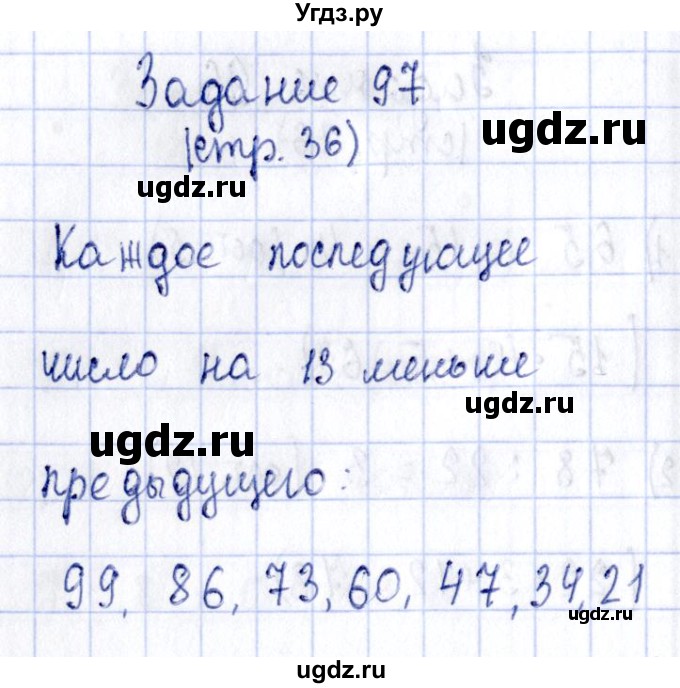 Угдз.ру
Задание 97
ugdz.ru
(стр. 36)
ugdz.ru
Каждое последующее
число на 13 меньше
ugdz.ru
ugdz.ru
предыдущего:
99, 86, 73, 60, 47, 34, 21
ugdz.ru
ugdz.ru